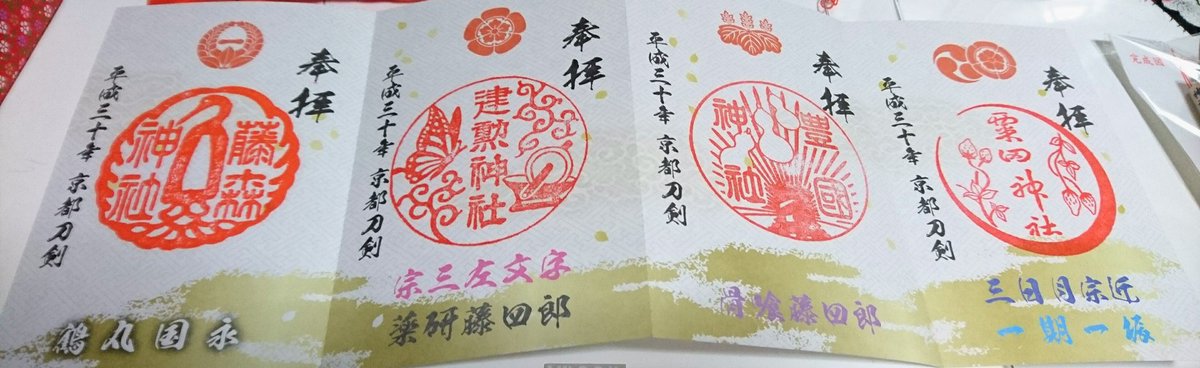 完成図
奉拝
粟田神社
平成三十年 京都刀剣
三日月宗近
一期一振
奉拝
豊國
神社
平成三十年 京都刀剣
骨喰藤四郎
奉拝
建勲神社
平成三十年 京都刀剣
宗三左文字
薬研藤四郎
奉拝
藤森
神社
平成三十年 京都刀剣
鶴丸国永